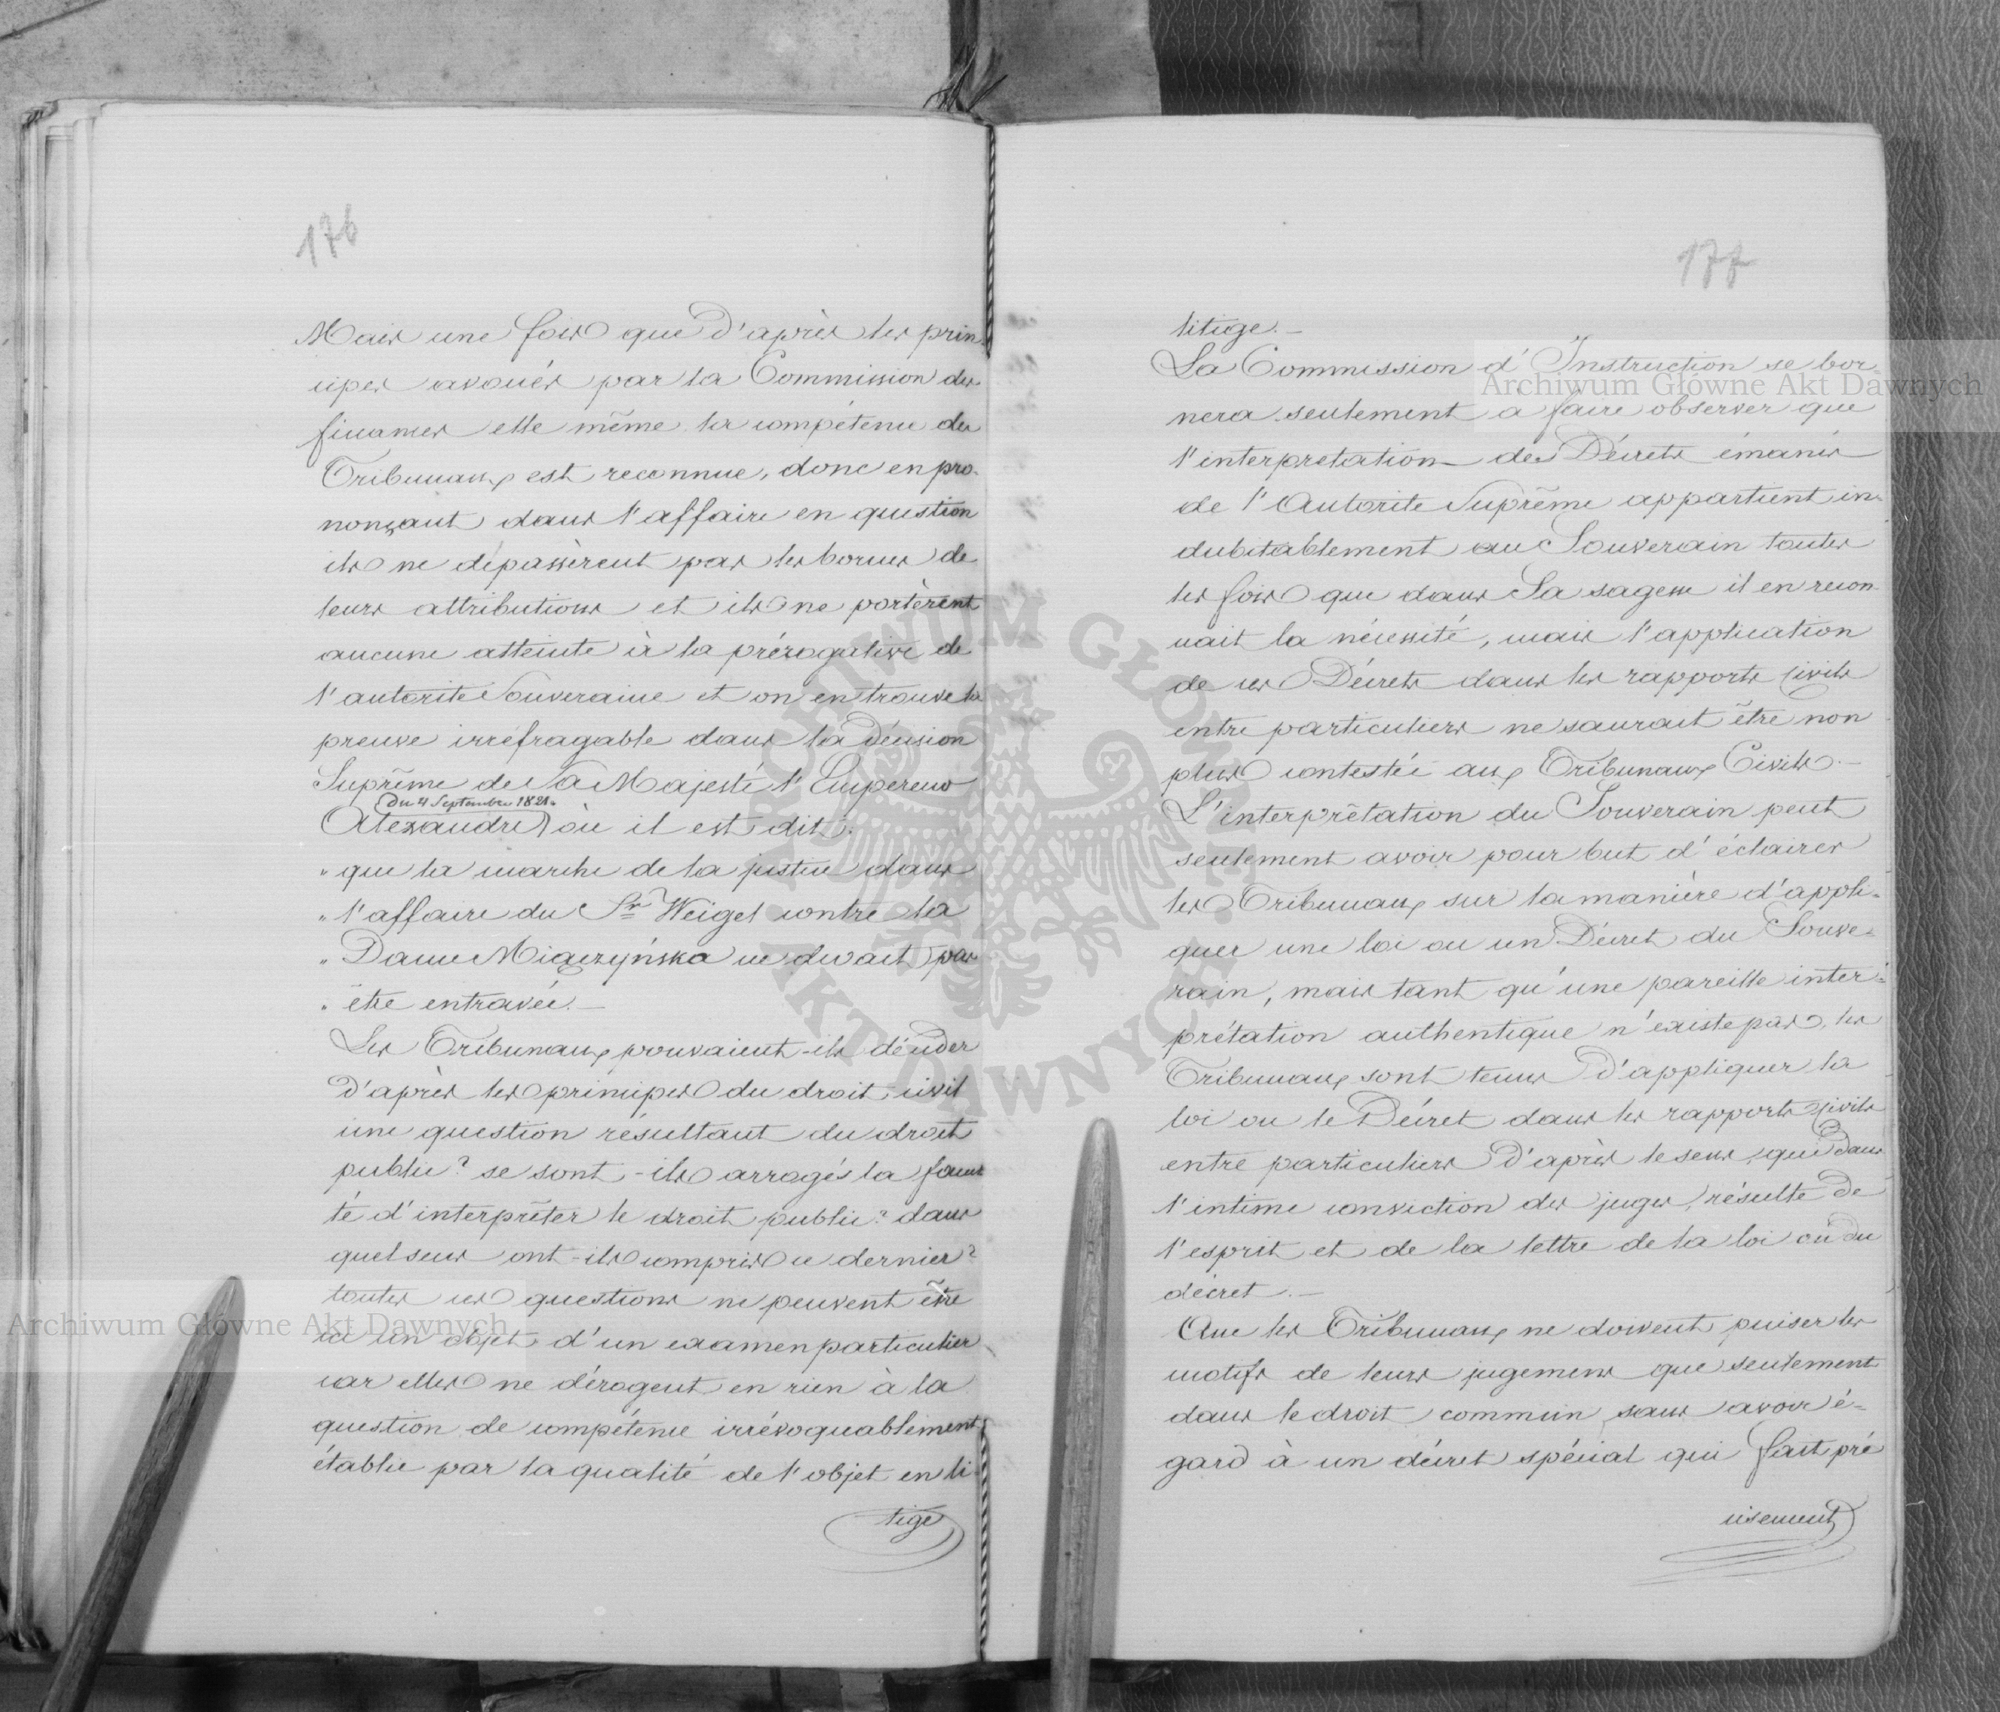 176
Mais une fois que d'après les prin-
cipes avoués par la Commission des
finances elle même la compétence des
Tribunaux est reconnue, donc en pro-
nonçant dans l'affaire en question
ils ne dépassèrent pas les bornes de
leurs attributions et ils ne portèrent
aucune atteinte à la prérogative de
l'autorité Souveraine et on en trouve la
preuve irréfragable dans la Décision
Suprême de Sa Majesté l'Empereur
du 4 Septembre 1821.
Alexandre, où il est dit:
"que la marche de la justice dans
"l'affaire du Sr Weigel contre la
"Dame Miączyńska ne devait pas
"être entravée.—
Les Tribunaux pouvaient-ils décider
d'après les principes du droit civil
une question résultant du droit
public? se sont-ils arrogés la facul
té d'interprêter le droit public? dans
quel sens ont-ils compris ce dernier?
toutes ces questions ne peuvent être
ici un objet d'un examen particulier
car elles ne dérogent en rien à la
question de compétence irrévoquablement
établie par la qualité de l'objet en li
tige
177
litige.—
La Commission d'Instruction se bor-
nera seulement a faire observer que
l'interpretation des Décrets émanés
de l'Autorite Suprême appartient in-
dubitablement au Souverain toutes
les fois que dans Sa sagesse il en recon
nait la nécessité, mais l'application
de ces Décrets dans les rapports civils
entre particuliers ne saurait être non
plus contestée aux Tribunaux Civils.—
L'interprêtation du Souverain peut
seulement avoir pour but d'éclairer
les Tribunaux sur la manière d'appli-
quer une loi ou un Décret du Souve-
rain, mais tant qu'une pareille inter-
prétation authentique n'existe pas, les
Tribunaux sont tenus d'appliquer la
loi ou le Décret dans les rapports civils
entre particuliers d'après le sens, qui dans
l'intime conviction des juges, résulte de
l'esprit et de la lettre de la loi ou du
décret.—
Que les Tribunaux ne doivent puiser les
motifs de leurs jugemens que seulement
dans le droit commun sans avoir é-
gard à un décret spécial qui fait pré
cisement
Archiwum Główne Akt Dawnych
Archiwum Główne Akt Dawnych
ARCHIWUM GŁÓWNE
AKT DAWNYCH